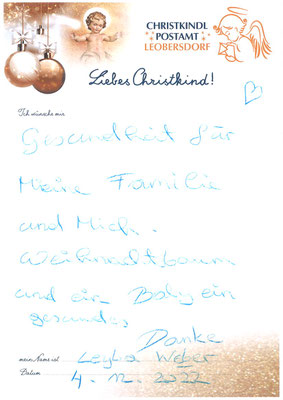 CHRISTKINDL
POSTAMT
LEOBERSDORF
Liebes Christkind!
Ich wünsche mir
Gesundheit für
Meine Familie
und Mich.
Weihnachtsbaum
und ein Baby ein
gesundes
Danke
mein Name ist Leyla Weber
Datum 4. 12. 2022